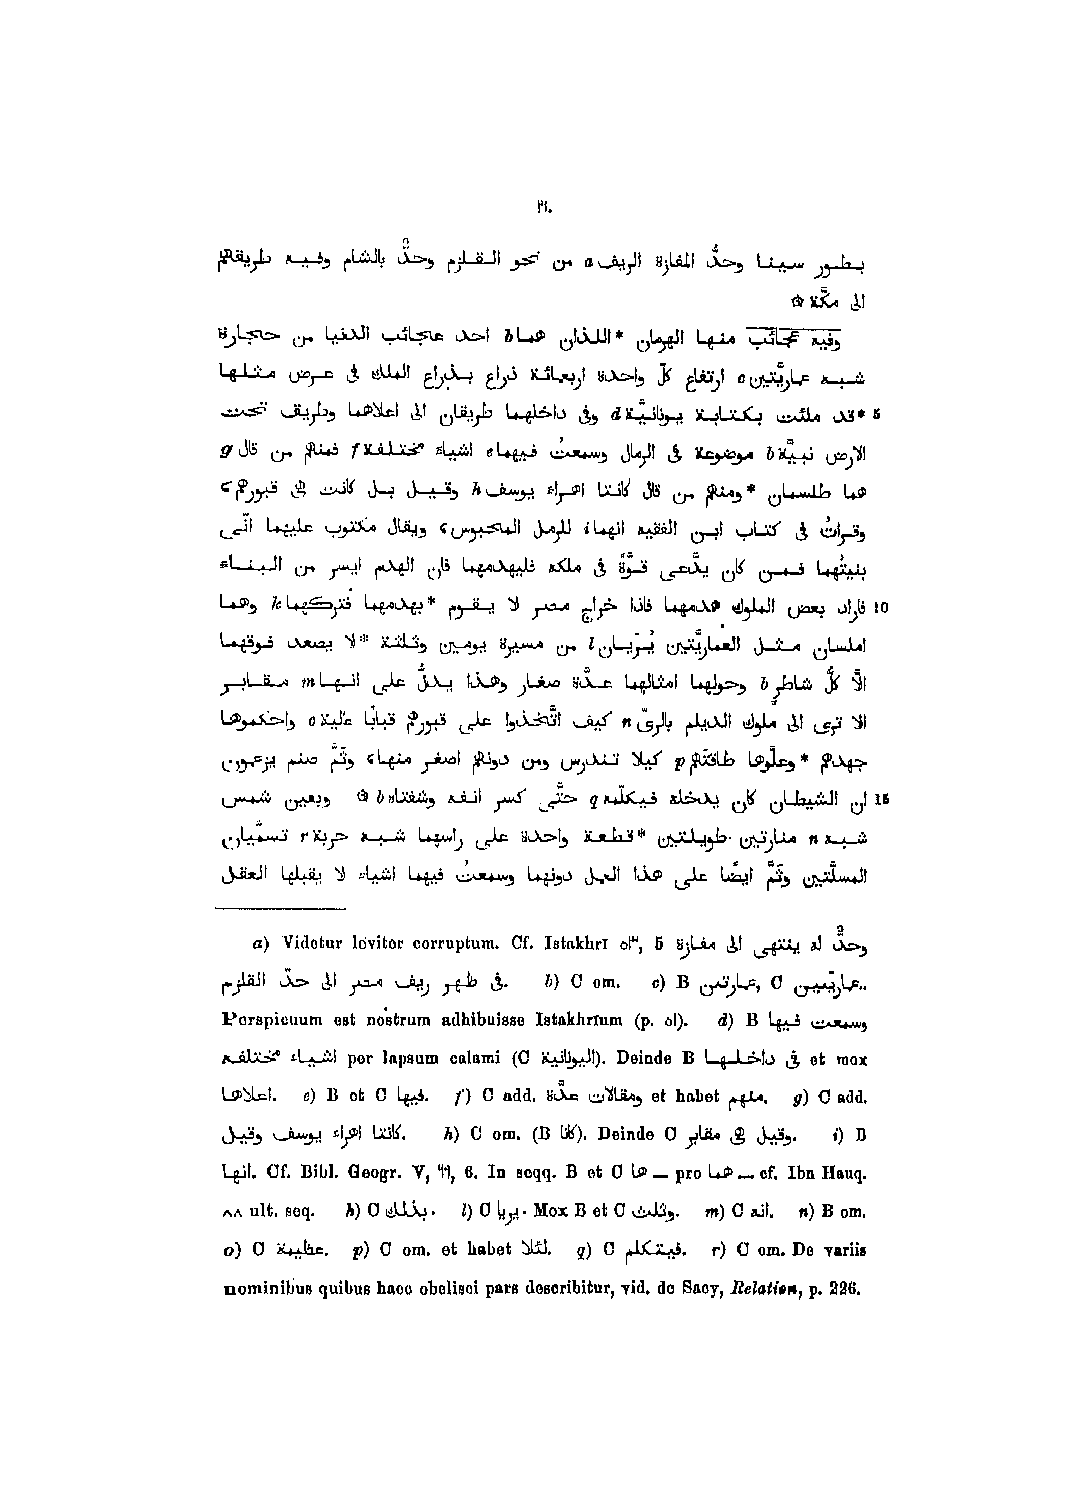 ٢١٠
بطور سينا وحدُّ المفازة الريف a من نحو القلزم وحدٌّ بالشام وفيه طريقهم
الى مكّة ۞
وفيه عجائب منها الهرمان *اللذان هما b احد عجائب الدنيا من حجارة
شبه عماريّتين c ارتفاع كلّ واحدة اربعمائة ذراع بذراع الملك فى عرض مثلها
5 *قد ملئت بكتابة يونانيّة d وفى داخلهما طريقان الى اعلاهما وطريق تحت
الارض نبيّة b موضوعة فى الرمال وسمعتُ فيهما e اشياء مختلفة f فمنهم من قال g
هما طلسمان *ومنهم من قال كانتا اهراء يوسف h وقيل بل كانت هى قبورهم c
وقراتُ فى كتاب ابن الفقيه انهما i للرمل المحبوس c ويقال مكتوب عليهما انّى
بنيتُهما فمن كان يدّعى قوّة فى ملكه فليهدمهما فان الهدم ايسر من البناء
10 فاراد بعض الملوك هدمهما فاذا خراج مصر لا يقوم *بهدمهما فتركهما k وهما
املسان مثل العماريّتين يُرَيان l من مسيرة يومين وثلثة *لا يصعد فوقهما
الّا كلُّ شاطر b وحولهما امثالهما عدّة صغار وهذا يدلّ على انهما m مقابر
الا ترى الى ملوك الديلم بالرىّ n كيف اتّخذوا على قبورهم قبابًا عالية o واحكموها
جهدهم *وعلّوها طاقتهم p كيلا تندرس ومن دونهم اصغر منها c وثَمَّ صنم يزعمون
15 ان الشيطان كان يدخله فيكلّمه q حتّى كسر انفه وشفتاه b ۞ وبعين شمس
شبه n منارتين طويلتين *قطعة واحدة على راسهما شبه حربة r تسمّيان
المسلّتين وثَمَّ ايضًا على هذا العمل دونهما وسمعتُ فيهما اشياء لا يقبلها العقل
a) Videtur leviter corruptum. Cf. Istakhrī ٥١٣, 5 وحدٌّ له ينتهى الى مفازة
فى ظهر ريف مصر الى حدّ القلزم. b) C om. c) B عمارتين, C عمارتّيين..
Perspicuum est nostrum adhibuisse Istakhrīum (p. ٥١). d) B وسمعت فيها
اشياء مختلفه per lapsum calami (C اليونانية). Deinde B فى داخلها et mox
اعلاها. e) B et C فيها. f) C add. ومقالات عدّة et habet منهم. g) C add.
كانتا اهراء يوسف وقيل. h) C om. (B كانا). Deinde C وقيل هى مقابر. i) B
انها. Cf. Bibl. Geogr. V, ٦٩, 6. In seqq. B et C ها — pro هما — cf. Ibn Hauq.
٨٨ ult. seq. k) C بذلك. l) C يريا. Mox B et C وثلث. m) C انه. n) B om.
o) C عظيمة. p) C om. et habet لئلا. q) C فيتكلم. r) C om. De variis
nominibus quibus haec obelisci pars describitur, vid. de Sacy, Relation, p. 226.